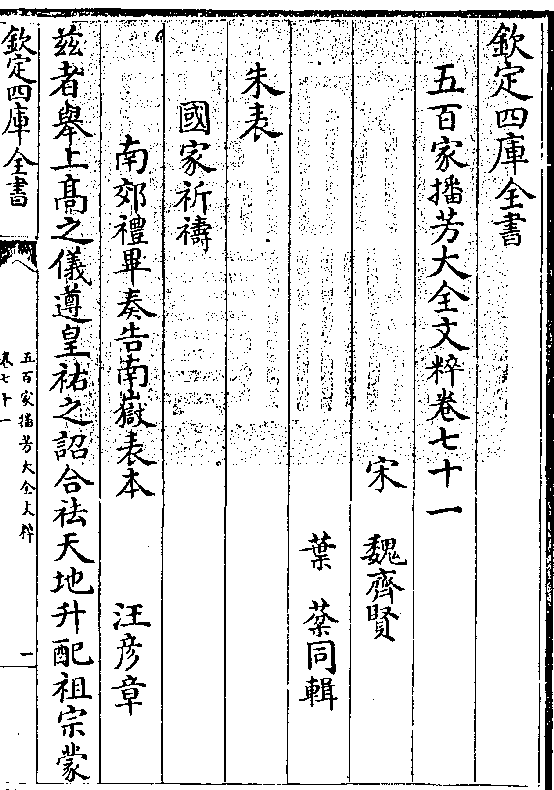 欽定四庫全書
五百家播芳大全文粹卷七十一
宋 魏齊賢
葉 棻同輯
朱表
國家祈禱
南郊禮畢奏告南嶽表本 汪彦章
兹者舉上髙之儀遵皇祐之詔合祛天地升配祖宗蒙
欽定四庫全書
五百家播芳大全文粹
卷七十一
一